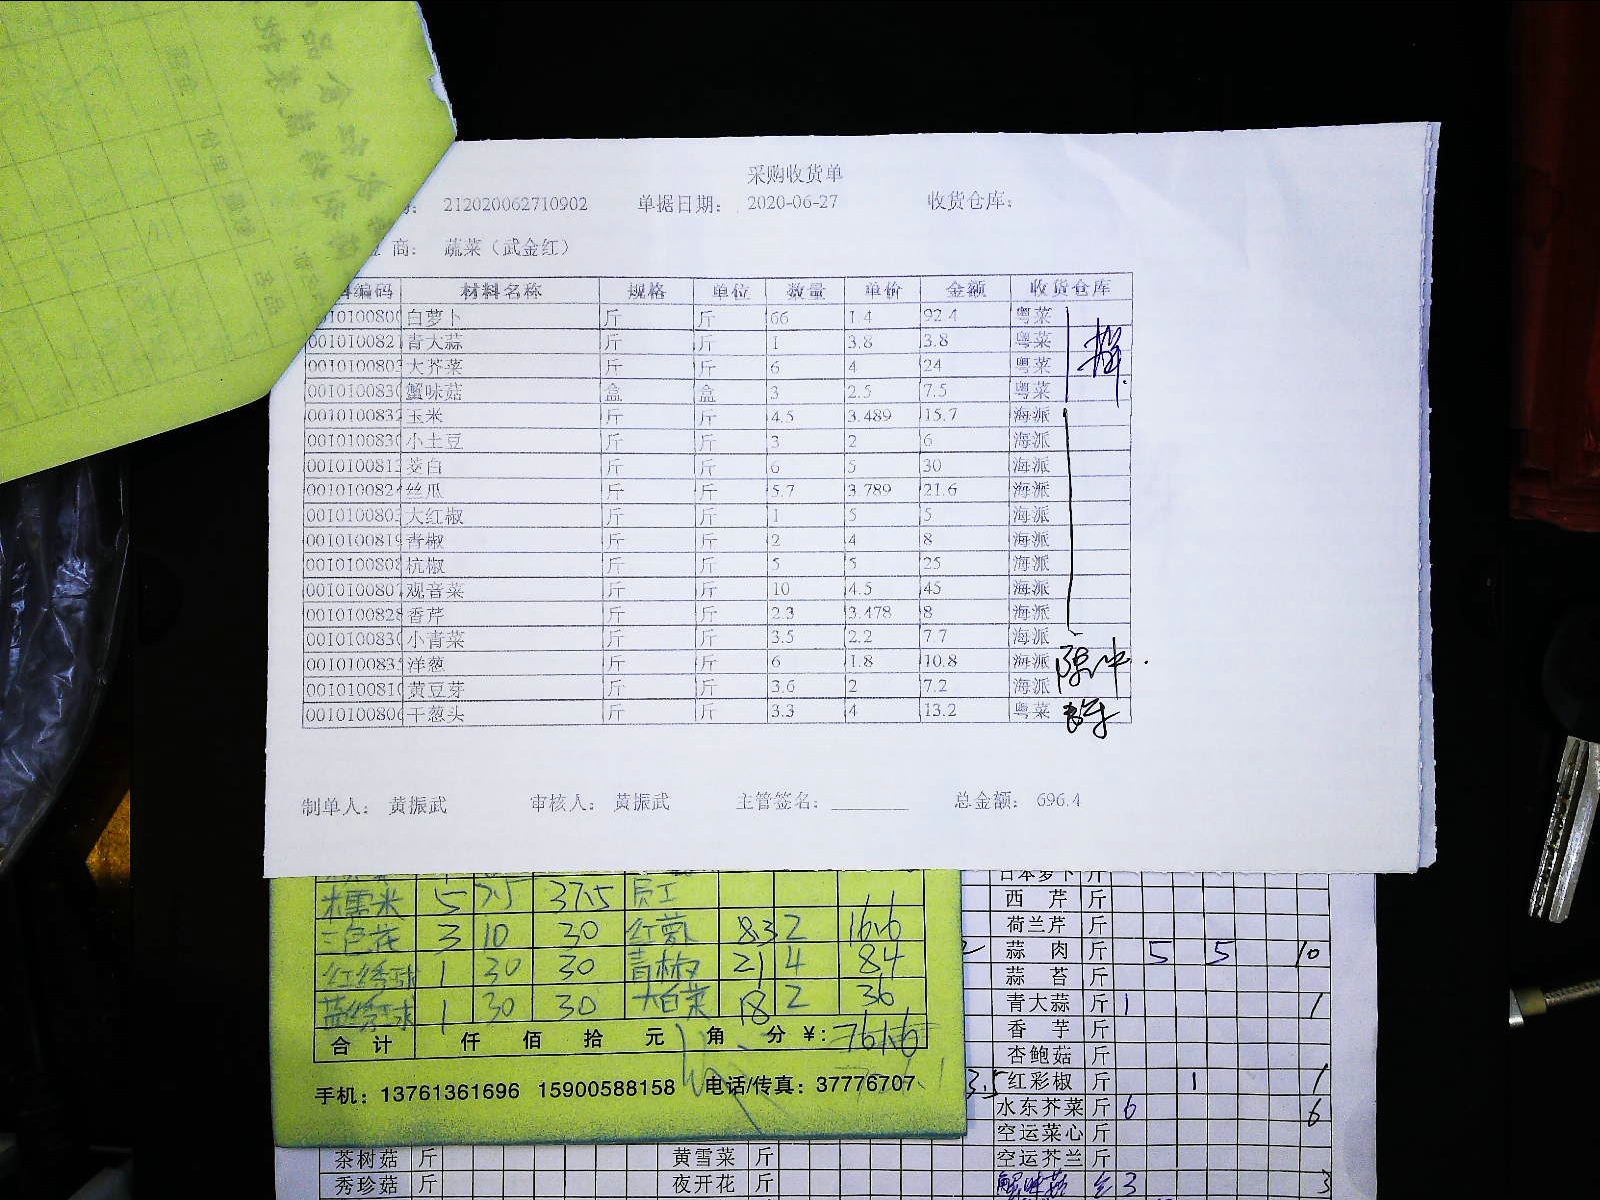 采购收货单
212020062710902 单据日期: 2020-06-27 收货仓库:
商: 蔬菜（武金红）
编码 材料名称 规格 单位 数量 单价 金额 收货仓库
白萝卜 斤 斤 66 1.4 92.4 粤菜
001010082 青大蒜 斤 斤 1 3.8 3.8 粤菜
001010080 大芥菜 斤 斤 6 4 24 粤菜
001010083 蟹味菇 盒 盒 3 2.5 7.5 粤菜
001010083 玉米 斤 斤 4.5 3.489 15.7 海派
001010083 小土豆 斤 斤 3 2 6 海派
001010081 茭白 斤 斤 6 5 30 海派
001010082 丝瓜 斤 斤 5.7 3.789 21.6 海派
001010080 大红椒 斤 斤 1 5 5 海派
001010081 青椒 斤 斤 2 4 8 海派
001010080 杭椒 斤 斤 5 5 25 海派
001010080 观音菜 斤 斤 10 4.5 45 海派
001010082 香芹 斤 斤 2.3 3.478 8 海派
001010083 小青菜 斤 斤 3.5 2.2 7.7 海派
001010083 洋葱 斤 斤 6 1.8 10.8 海派
001010081 黄豆芽 斤 斤 3.6 2 7.2 海派
001010080 干葱头 斤 斤 3.3 4 13.2 粤菜
制单人: 黄振武 审核人: 黄振武 主管签名: 总金额: 696.4
糯米 5 7.5 37.5 员工
三色花 3 10 30 红萝卜 8.3 2 16.6
红绣球 1 30 30 青椒 21 4 84
蓝绣球 1 30 30 大白菜 18 2 36
合计 仟 佰 拾 元 角 分 ¥: 761.6
手机: 13761361696 15900588158 电话/传真: 37776707
日本萝卜 斤
西芹 斤
荷兰芹 斤
蒜肉 斤 5 5 10
蒜苔 斤
青大蒜 斤 1 1
香芋 斤
杏鲍菇 斤
3.5 红彩椒 斤 1 1
水东芥菜 斤 6 6
空运菜心 斤
茶树菇 斤 黄雪菜 斤 空运芥兰 斤
秀珍菇 斤 夜开花 斤 蟹味菇 盒 3 3